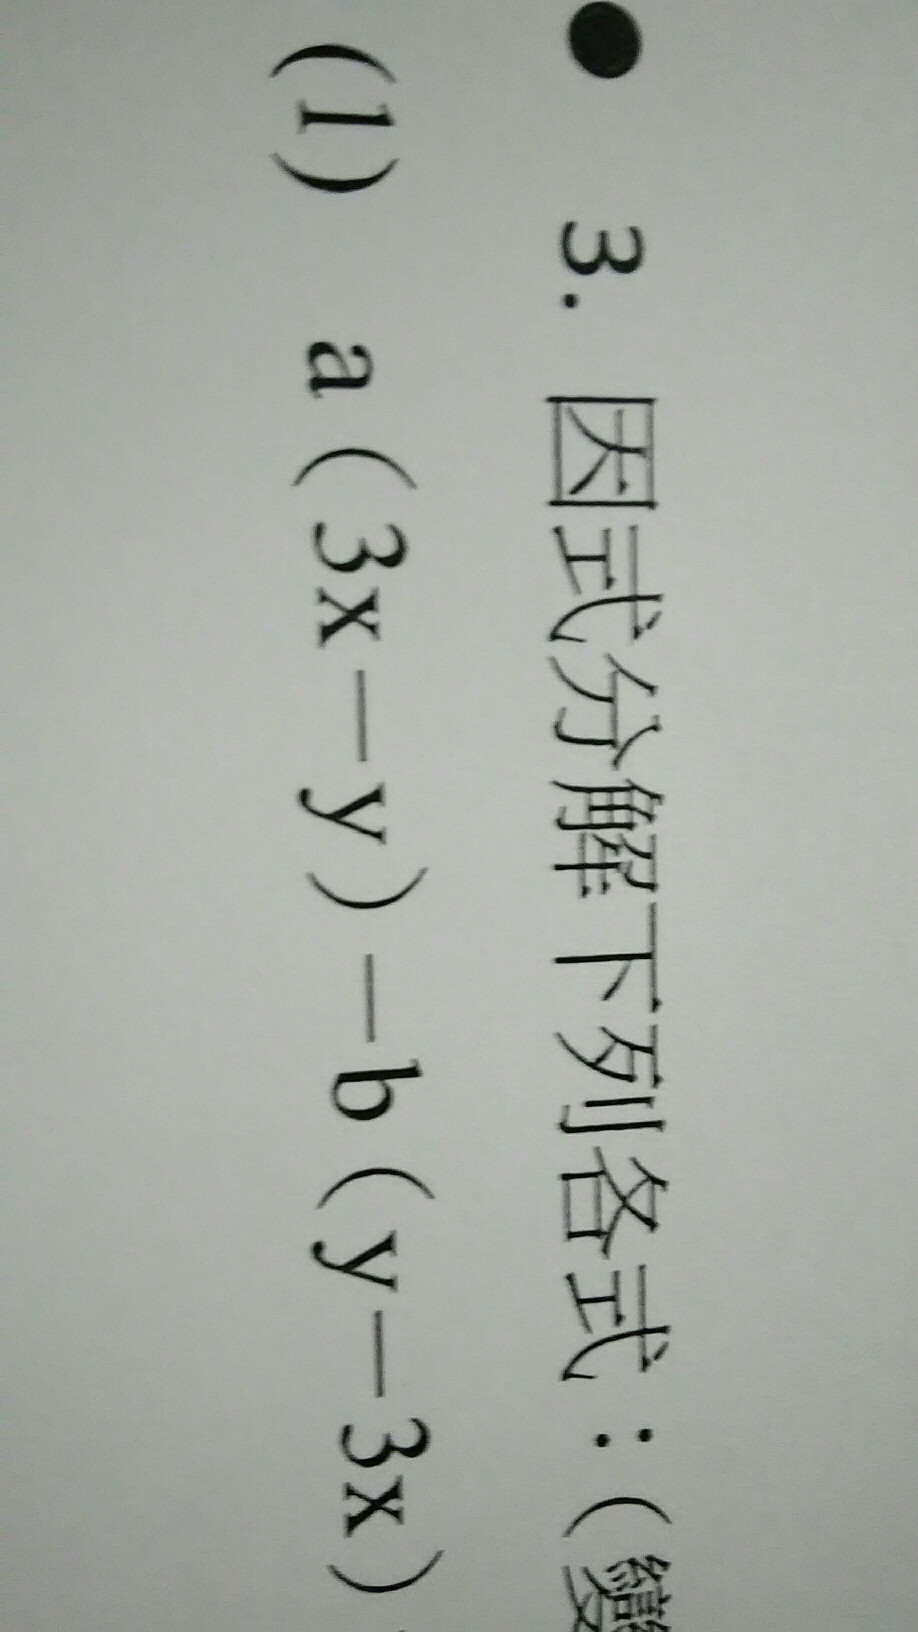 ● 3. 因式分解下列各式：(變
(1) a(3x－y)－b(y－3x)